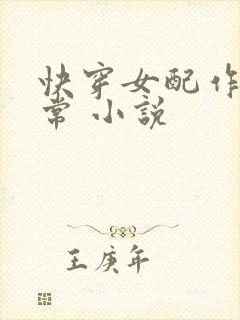 快穿女配作
常 小說
王庚年